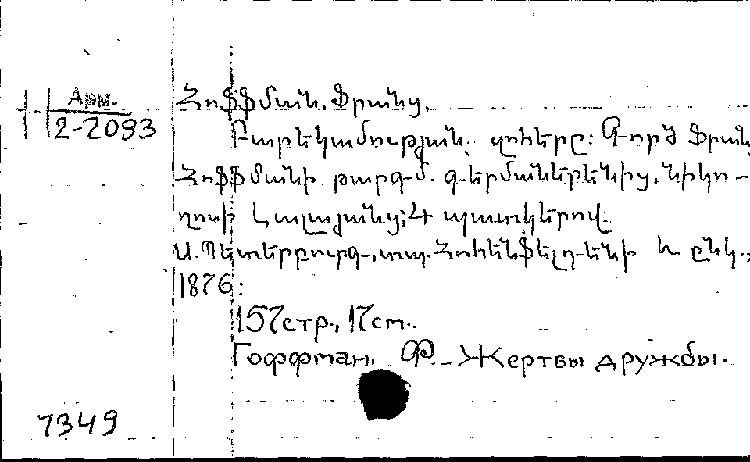 Арм.
2-2093
Հոֆֆման, Ֆրանց.
Բարեկամության զոհերը: Գործ Ֆրանց
Հոֆֆմանի թարգմ. գերմաներենից, Նիկո-
ղոսի Նալաջյանց; 4 պատկերով.
Ս. Պետերբուրգ, տպ. Հոհենֆելդենի և ընկ.,
1876:
157стр., 17cm.
Гоффман, Ф. - Жертвы дружбы.
7349